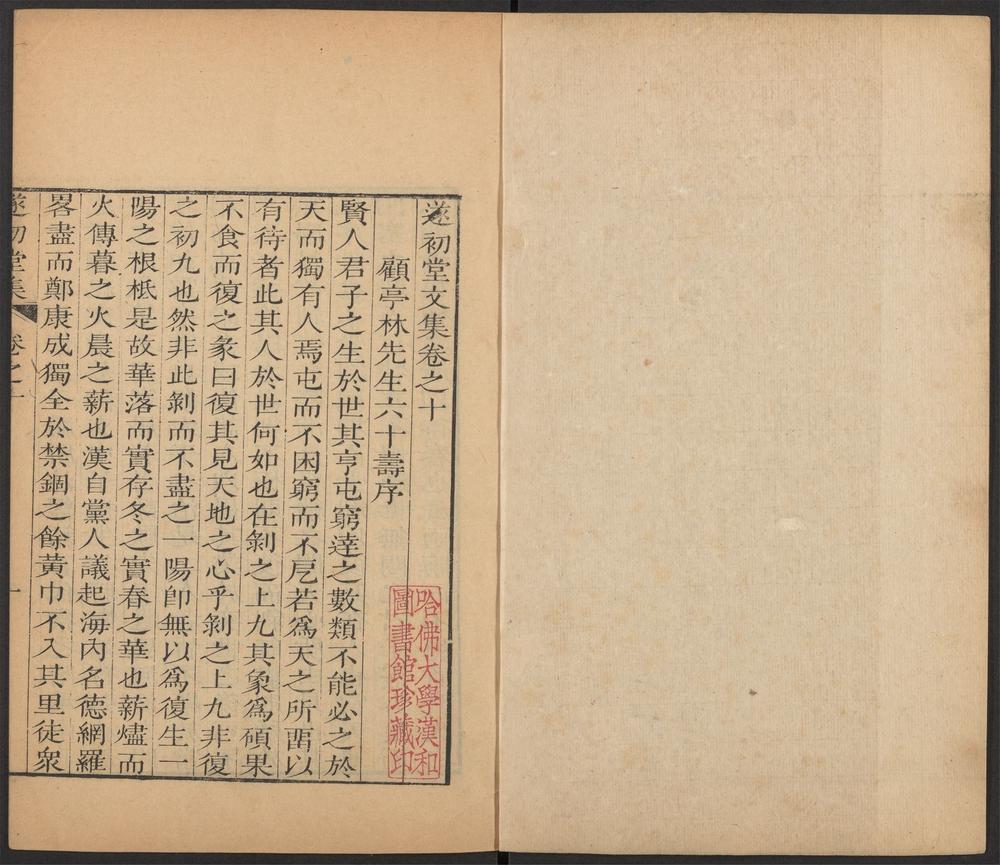 遂初堂文集卷之十
顧亭林先生六十壽序
賢人君子之生於世其亨屯窮達之數類不能必之於
天而獨有人焉屯而不困窮而不戹若爲天之所畱以
有待者此其人於世何如也在剝之上九其象爲碩果
不食而復之彖曰復其見天地之心乎剝之上九非復
之初九也然非此剝而不盡之一陽卽無以爲復生一
陽之根柢是故華落而實存冬之實春之華也薪燼而
火傳暮之火晨之薪也漢自黨人議起海內名德網羅
畧盡而鄭康成獨全於禁錮之餘黃巾不入其里徒衆
遂初堂集 卷之十 一
哈佛大學漢和
圖書館珍藏印